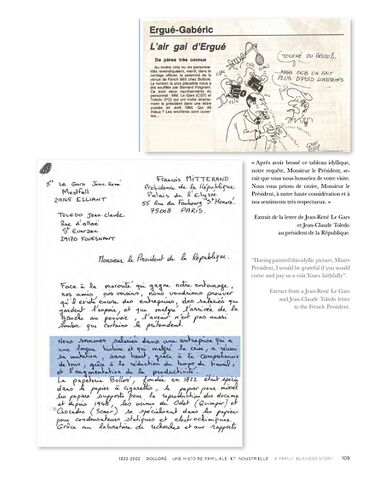 Ergué-Gabéric
L'air gai d'Ergué
De pères très connus
Au moins cinq ou six personnes
TOUCHÉ DU GEIZE!..
AVEC OCB ON FAIT
PLUS D'PÈRE LONGTEMPS
« Après avoir brossé ce tableau idyllique,
notre requête, Monsieur le Président, se-
rait que vous nous honoriez de votre visite.
Nous vous prions de croire, Monsieur le
Président, à notre haute considération et à
nos sentiments très respectueux. »
Extrait de la lettre de Jean-René Le Gars
et Jean-Claude Toledo
au président de la République.
"Having painted this idyllic picture, Mister
President, I would be grateful if you would
come and pay us a visit. Yours faithfully".
Extract from a Jean-René Le Gars
and Jean-Claude Toledo letter
to the French President.
Sr Le Gars Jean-René
29145 ELLIANT
Toledo Jean Claude
Rue d'Alsoë
St Evarzec
29170 FOUESNANT
François MITTERAND
Présidence de la République
Palais de l'Elysée
55 Rue du Faubourg St Honoré
75008 PARIS.
Monsieur le Président de la République.
Face à la morosité qui gagne, notre entourage,
nos amis, nos voisins, nous voudrions prouver
qu'il existe encore des entreprises, des salariés qui
gardent l'espoir, et que malgré l'arrivée de la
gauche au pouvoir, l'avenir n'est pas aussi
sombre que certains le prétendent.
Nous sommes salariés dans une entreprise qui a
une longue histoire et qui malgré la crise, a réussi
sa mutation, sans heurt, grâce à la compétence
de tous, grâce à la réduction du temps de travail,
et l'augmentation de la productivité.
La papeterie Bolloré, fondée en 1822 était spécia
dans le papier à cigarettes, le papier pour
les papiers supports pour la reproduction des documents
et depuis 1948, les usines de Odet (Quimper) et
Cascadec (Scaer) se spécialisent dans les papiers
pour condensateurs statiques et électrochimiques.
Grâce au laboratoire de recherches et aux rapports
1822-2022 BOLLORÉ UNE HISTOIRE FAMILIALE ET INDUSTRIELLE A FAMILY BUSINESS STORY 109